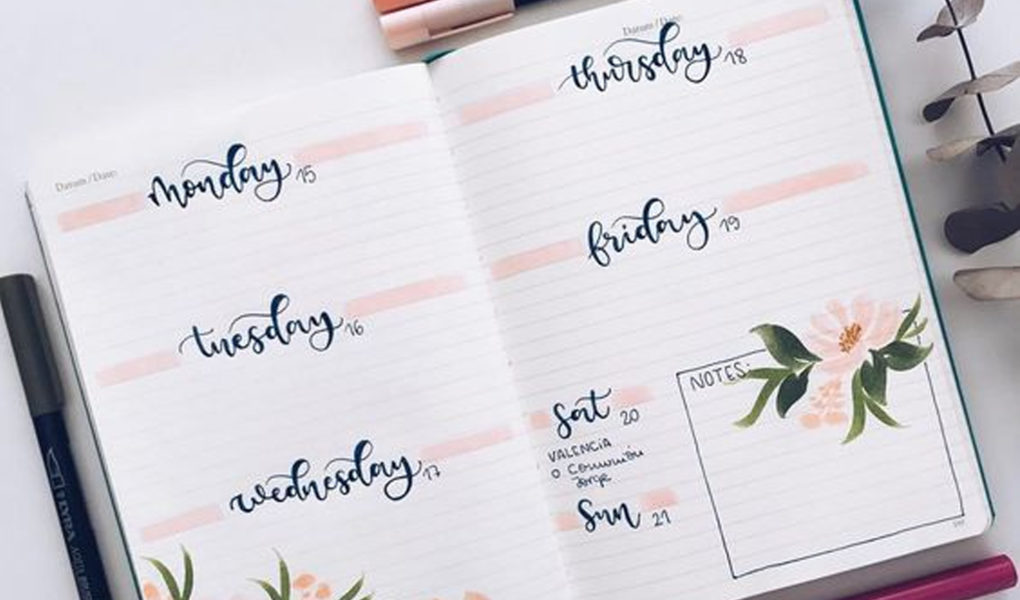 Datum / Date:
monday 15
tuesday 16
wednesday 17
Datum / Date:
thursday 18
friday 19
sat 20
VALENCIA
o Comunión
Jorge
sun 21
NOTES: